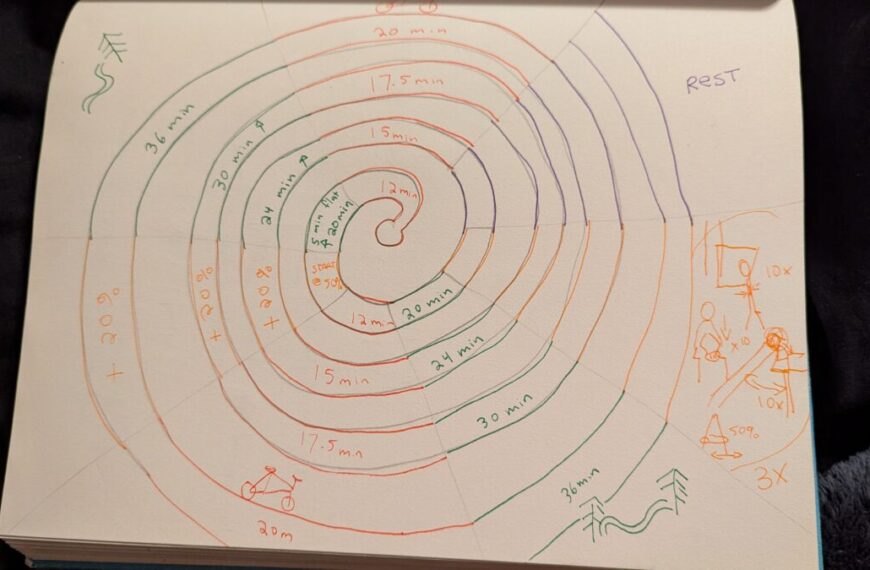 20 min
17.5 min
REST
36 min
15 min
30 min
24 min
12 min
5 min flat
20 min
START
@ 50%
+ 20%
+ 20%
+ 20%
10x
x10
10x
50%
3X
20 min
12 min
24 min
15 min
30 min
17.5 min
36 min
20 m